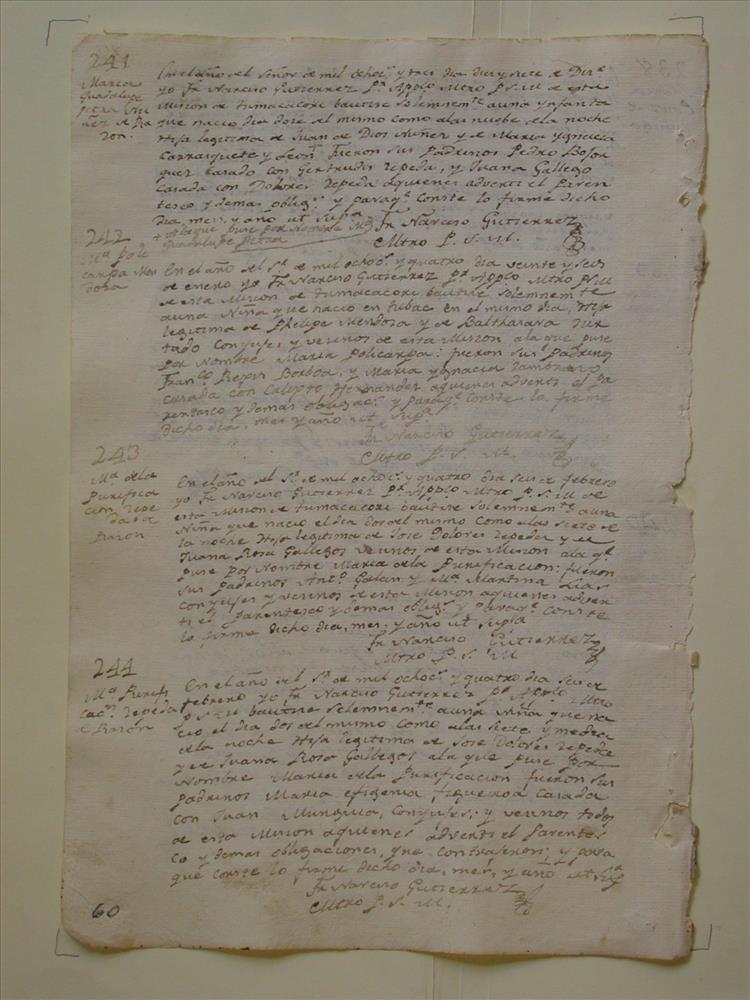 241
Maria
Guadalupe
Petra Nu
ñez de Ra
zon.
En el año del Señor de mil ochoc.s y tres dia diez y siete de Diz.e
yo Fr Narciso Gutierrez P.r Applo Mtro P. S. M de esta
Mision de Tumacacori bautize solemnem.te a una Ynfanta
que nacio dia doze del mismo como a las nuebe de la noche
Hija legitima de Juan de Dios Nuñez y de Maria Ygnacia
y Leon. Fueron sus Padrinos Pedro Bojor
quez casado con Gertrudis Zepeda, y Juana Gallego
Casada con Dolores Zepeda a quienes adverti el Paren
tesco y demas oblig.s y paraq.e Conste lo firme dicho
dia, mes, y año ut supra
+ ala que puse por Nombre
Guadalupe Petra
Fr Narciso Gutierrez
Mtro P. S. M.
242
M.a Poli
carpa Men
doza
En el año del S.r de mil ochoc.s y quatro dia veinte y seis
de enero yo Fr Narciso Gutierrez P.r Applo Mtro P. S. M
de esta Mision de Tumacacori bautize solemnem.te
a una Niña que nacio en Tubac en el mismo dia, Hija
legitima de Phelipe Mendoza y de Balthasara Hur
tado Conyujes y vecinos de esta Mision a la que puse
por Nombre Maria Policarpa: fueron sus Padrinos
Fran.co Borboa, y Maria Ygnacia Zambrano
casada con Calixto Hernandez a quienes adverti el Pa
rentesco y demas obligac.s y paraq.e Conste lo firme
dicho dia, mes y año ut supra
Fr Narciso Gutierrez
Mtro P. S. M.
243
M.a de la
Purifica
cion Zepe
da de
Razon
En el año del S.r de mil ochoc.s y quatro dia seis de febrero
yo Fr Narciso Gutierrez P.r Applo Mtro P. S. M de
esta Mision de Tumacacori bautize solemnem.te a una
Niña que nacio el dia dos del mismo como a las siete de
la noche Hija legitima de Jose Dolores Zepeda y de
Juana Rosa Gallegos vecinos de esta Mision a la q.e
puse por Nombre Maria de la Purificacion: fueron
sus Padrinos Ant.o Galan y M.a Martina
Conyujes y vecinos de esta Mision a quienes adver
ti el Parentesco y demas oblig.s y paraq.e Conste
lo firme dicho dia, mes, y año ut supra
Fr Narciso Gutierrez
Mtro P. S. M
244
M.a Purifi
cac.n Zepeda
de Razon
En el año del S.r de mil ochoc.s y quatro dia seis de
febrero yo Fr Narciso Gutierrez P.r Applo Mtro
P. S. M bautize solemnem.te a una Niña que na
cio el dia dos del mismo como a las siete y media
de la noche Hija legitima de Jose Dolores Zepeda
y de Juana Rosa Gallegos a la que puse por
Nombre Maria de la Purificacion fueron sus
padrinos Maria efigenia figueroa Casada
con Juan Munguia, Conyujes, y vecinos todos
de esta Mision a quienes adverti el Parentes
co y demas obligaciones, que contrageron; y para
que conste lo firme dicho dia, mes, y año ut supra
Fr Narciso Gutierrez
Mtro P. S. M.
60